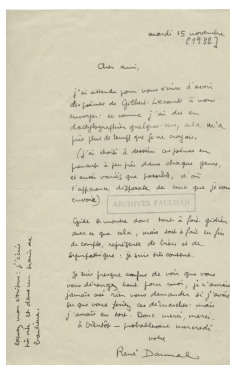 mardi 15 novembre
[1932]
Cher ami,
j'ai attendu pour vous écrire d'avoir
des poèmes de Gilbert-Lecomte à vous
envoyer; et comme j'ai dû en
dactylographier quelques-uns, cela m'a
pris plus de temps que je ne croyais.
(j'ai choisi à dessein ces poèmes en
prenant à peu près dans chaque genre,
et aussi variés que possible, d'où
l'apparence disparate de ceux que je vous
envoie)
ARCHIVES PAULHAN
Gide se montre donc tout à fait gidien
avec ce que cela, mais tout à fait en fin
de compte, représente de bien et de
sympathique : je suis très content.
Je suis presque confus de voir que vous
vous dérangez tant pour moi, je n'aurais
jamais osé rien vous demander si j'avais
su que vous feriez ces démarches; mais
j'aurais eu tort. Donc merci, merci.
à bientôt – probablement mercredi.
votre
René Daumal
excusez mon écriture : j'écris
et dans un train de
banlieue.